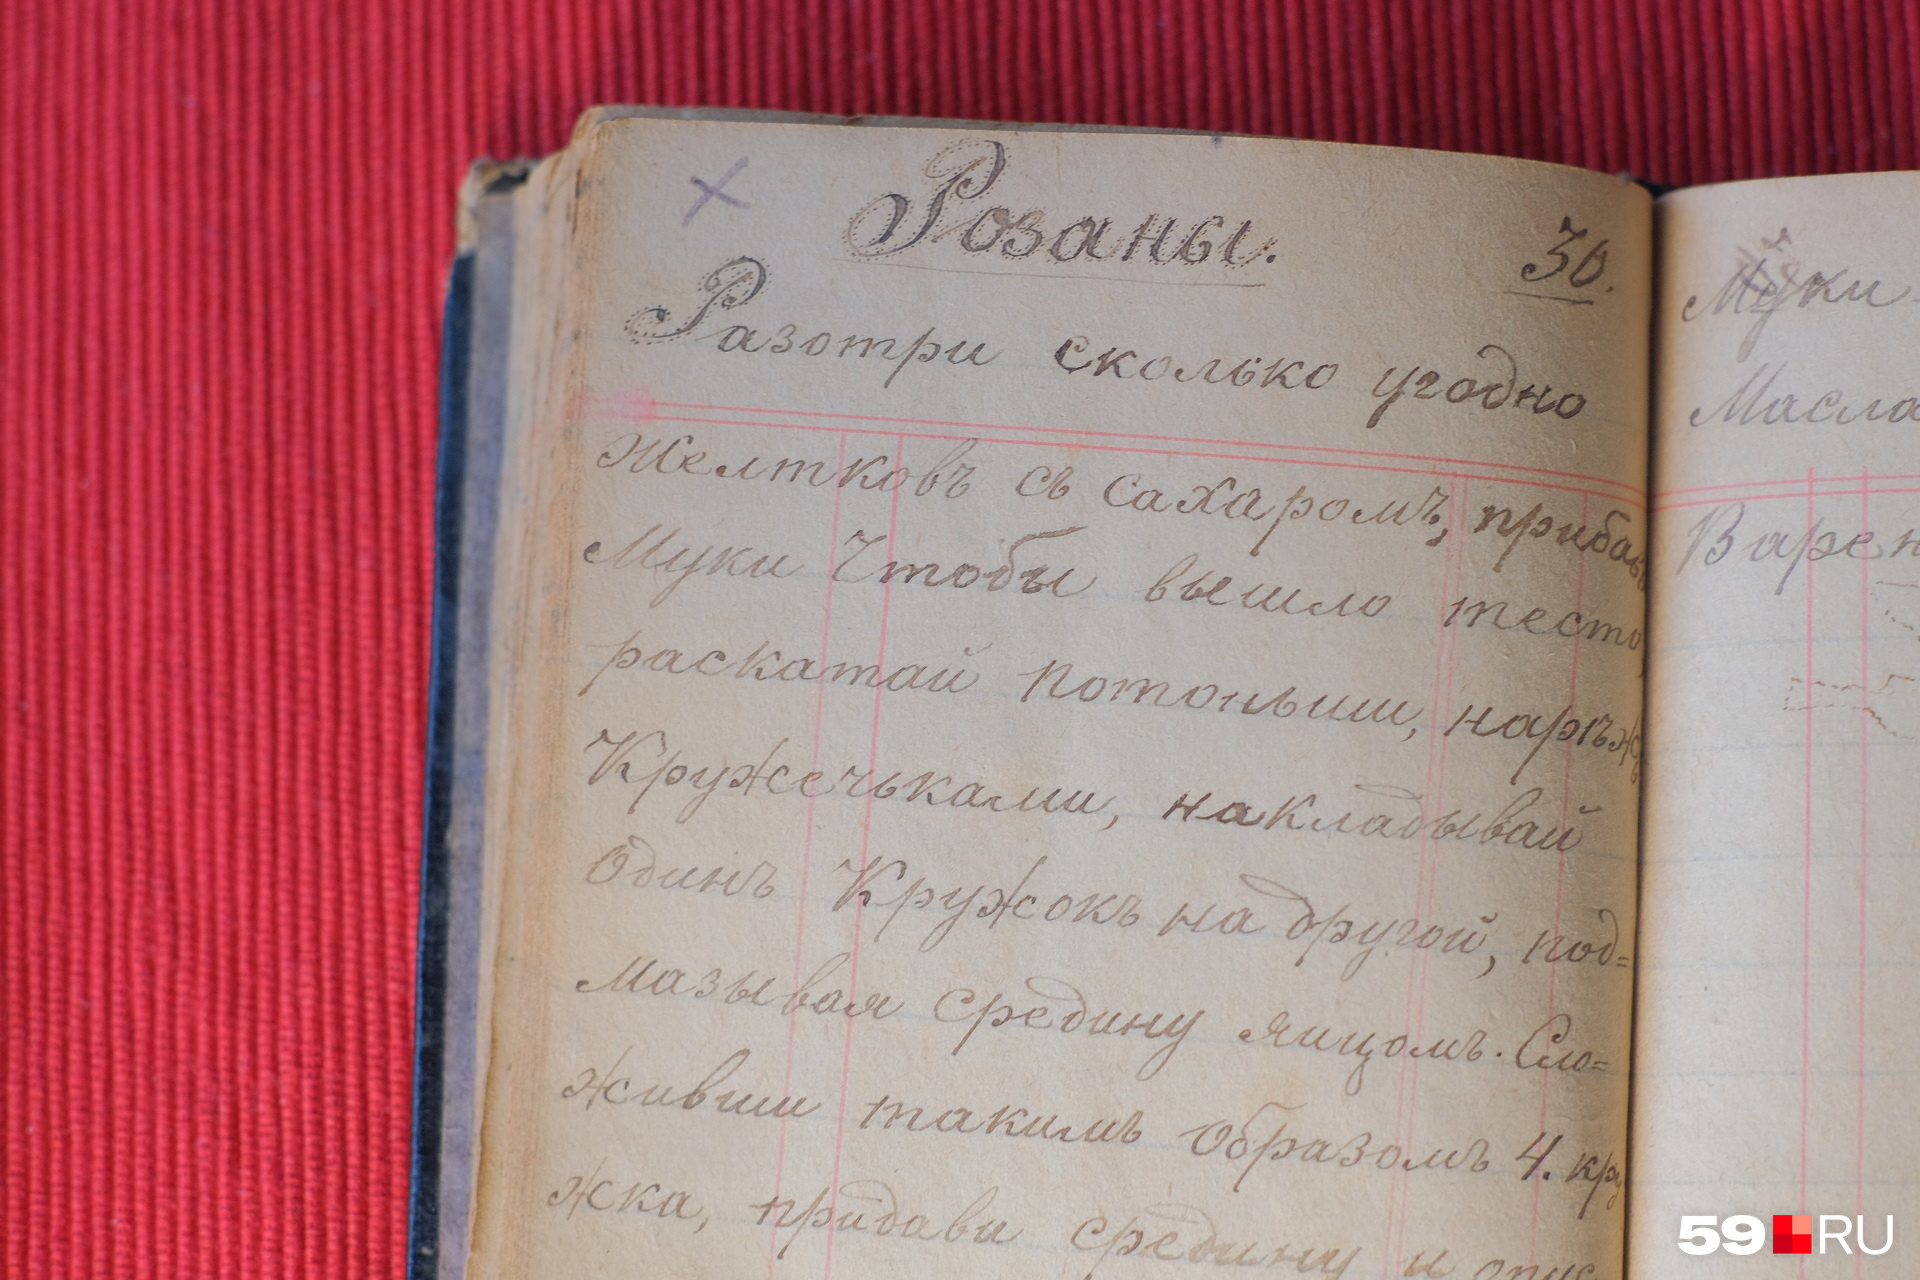 Розаны.
30.
Разотри сколько угодно
желтковъ съ сахаромъ, прибавь
Муки чтобы вышло тесто,
раскатай потоньши, наръжь
Кружечьками, накладывай
одинъ Кружокъ на другой, под=
мазывая средину яицомъ. Сло=
живши такимъ образомъ 4. кру
жка, придави средину и опус
Муки
Масла
Варен
59.RU